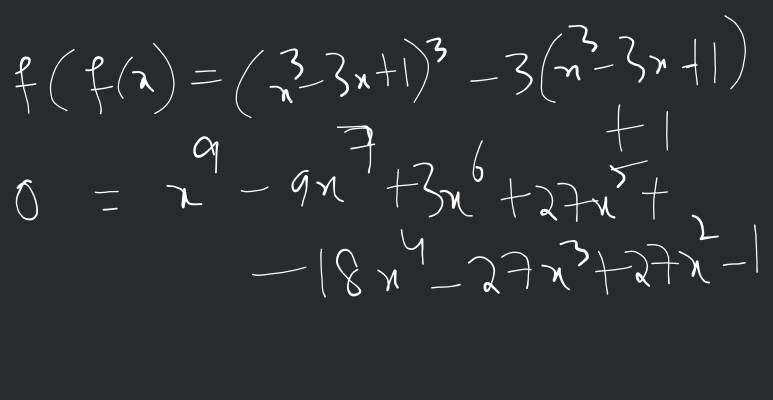 f(f(x) = (x³-3x+1)³ - 3(x³-3x+1)
+1
0 = x⁹ - 9x⁷ + 3x⁶ + 27x⁵ +
-18x⁴ - 27x³ + 27x² - 1